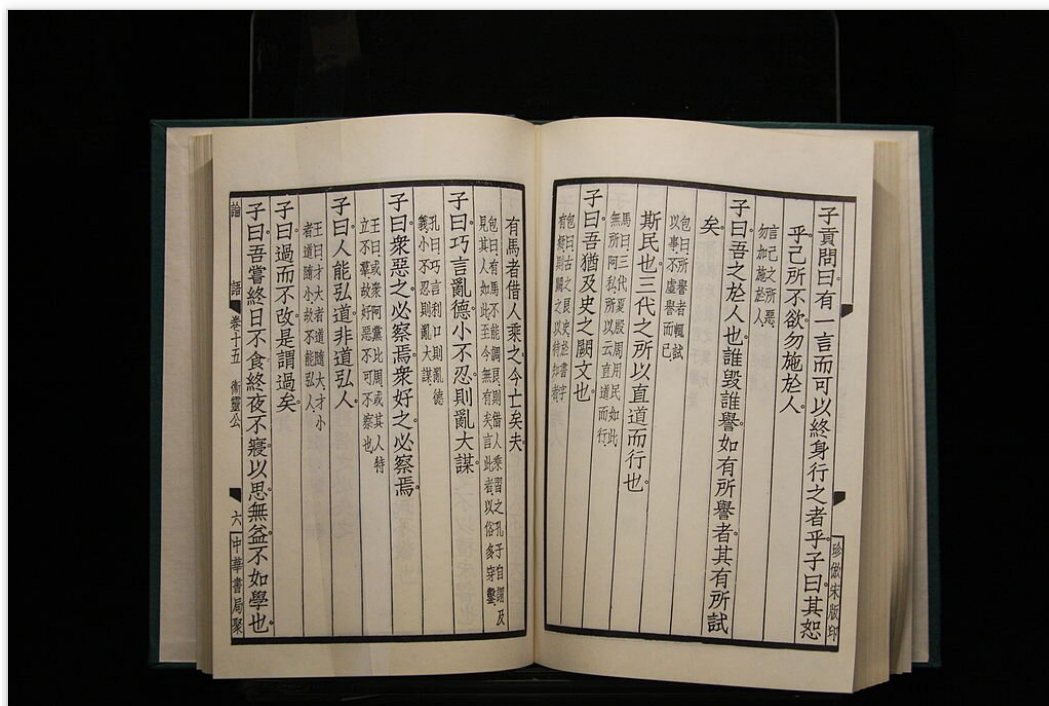 珍倣宋版印
子貢問曰有一言而可以終身行之者乎子曰其恕
乎己所不欲勿施於人
言己之所惡
勿加施於人
子曰吾之於人也誰毀誰譽如有所譽者其有所試
矣
包曰所譽者輒試
以事不虛譽而已
斯民也三代之所以直道而行也
馬曰三代夏殷周用民如此
無所阿私所以云直道而行
子曰吾猶及史之闕文也
包曰古之良史於書字
有疑則闕之以待知者
有馬者借人乘之今亡矣夫
包曰有馬不能調良則借人乘習之孔子自謂及
見其人如此至今無有矣言此者以俗多穿鑿
子曰巧言亂德小不忍則亂大謀
孔曰巧言利口則亂德
義小不忍則亂大謀
子曰衆惡之必察焉衆好之必察焉
王曰或衆阿黨比周或其人特
立不羣故好惡不可不察也
子曰人能弘道非道弘人
王曰才大者道隨大才小
者道隨小故不能弘人
子曰過而不改是謂過矣
子曰吾嘗終日不食終夜不寢以思無益不如學也
論語 卷十五 衞靈公 六 中華書局聚